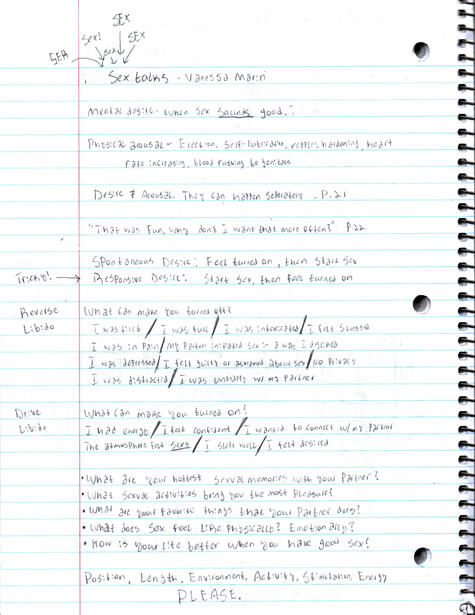 SEX
Sex!
SEX
sex
SEX
Sex talks - Vanessa Marin
Mental desire - When Sex sounds good.
Physical arousal - Erection, self-lubrication, nipples hardening, heart
rate increasing, blood rushing to genitals
Desire ≠ Arousal. They can happen separately. P.21
"That was fun, why don't I want that more often?" P.22
Spontaneous Desire: Feel turned on, then start sex
Tricky! → Responsive Desire: Start sex, then feel turned on
Reverse What can make you turned off?
Libido I was tired / I was full / I was intoxicated / I felt stressed
I was in pain / My Partner initiated sex in a way I disliked
I was depressed / I felt guilty or ashamed about sex / No Privacy
I was distracted / I was unhappy w/ my Partner
Drive What can make you turned on?
Libido I had energy / I felt confident / I wanted to connect w/ my Partner
The atmosphere felt sexy / I slept well / I felt desired
• What are your hottest sexual memories with your Partner?
• What sexual activities bring you the most pleasure?
• What are your favorite things that your Partner does?
• What does sex feel like physically? Emotionally?
• How is your life better when you have good sex?
Position, Length, Environment, Activity, Stimulation, Energy
PLEASE.